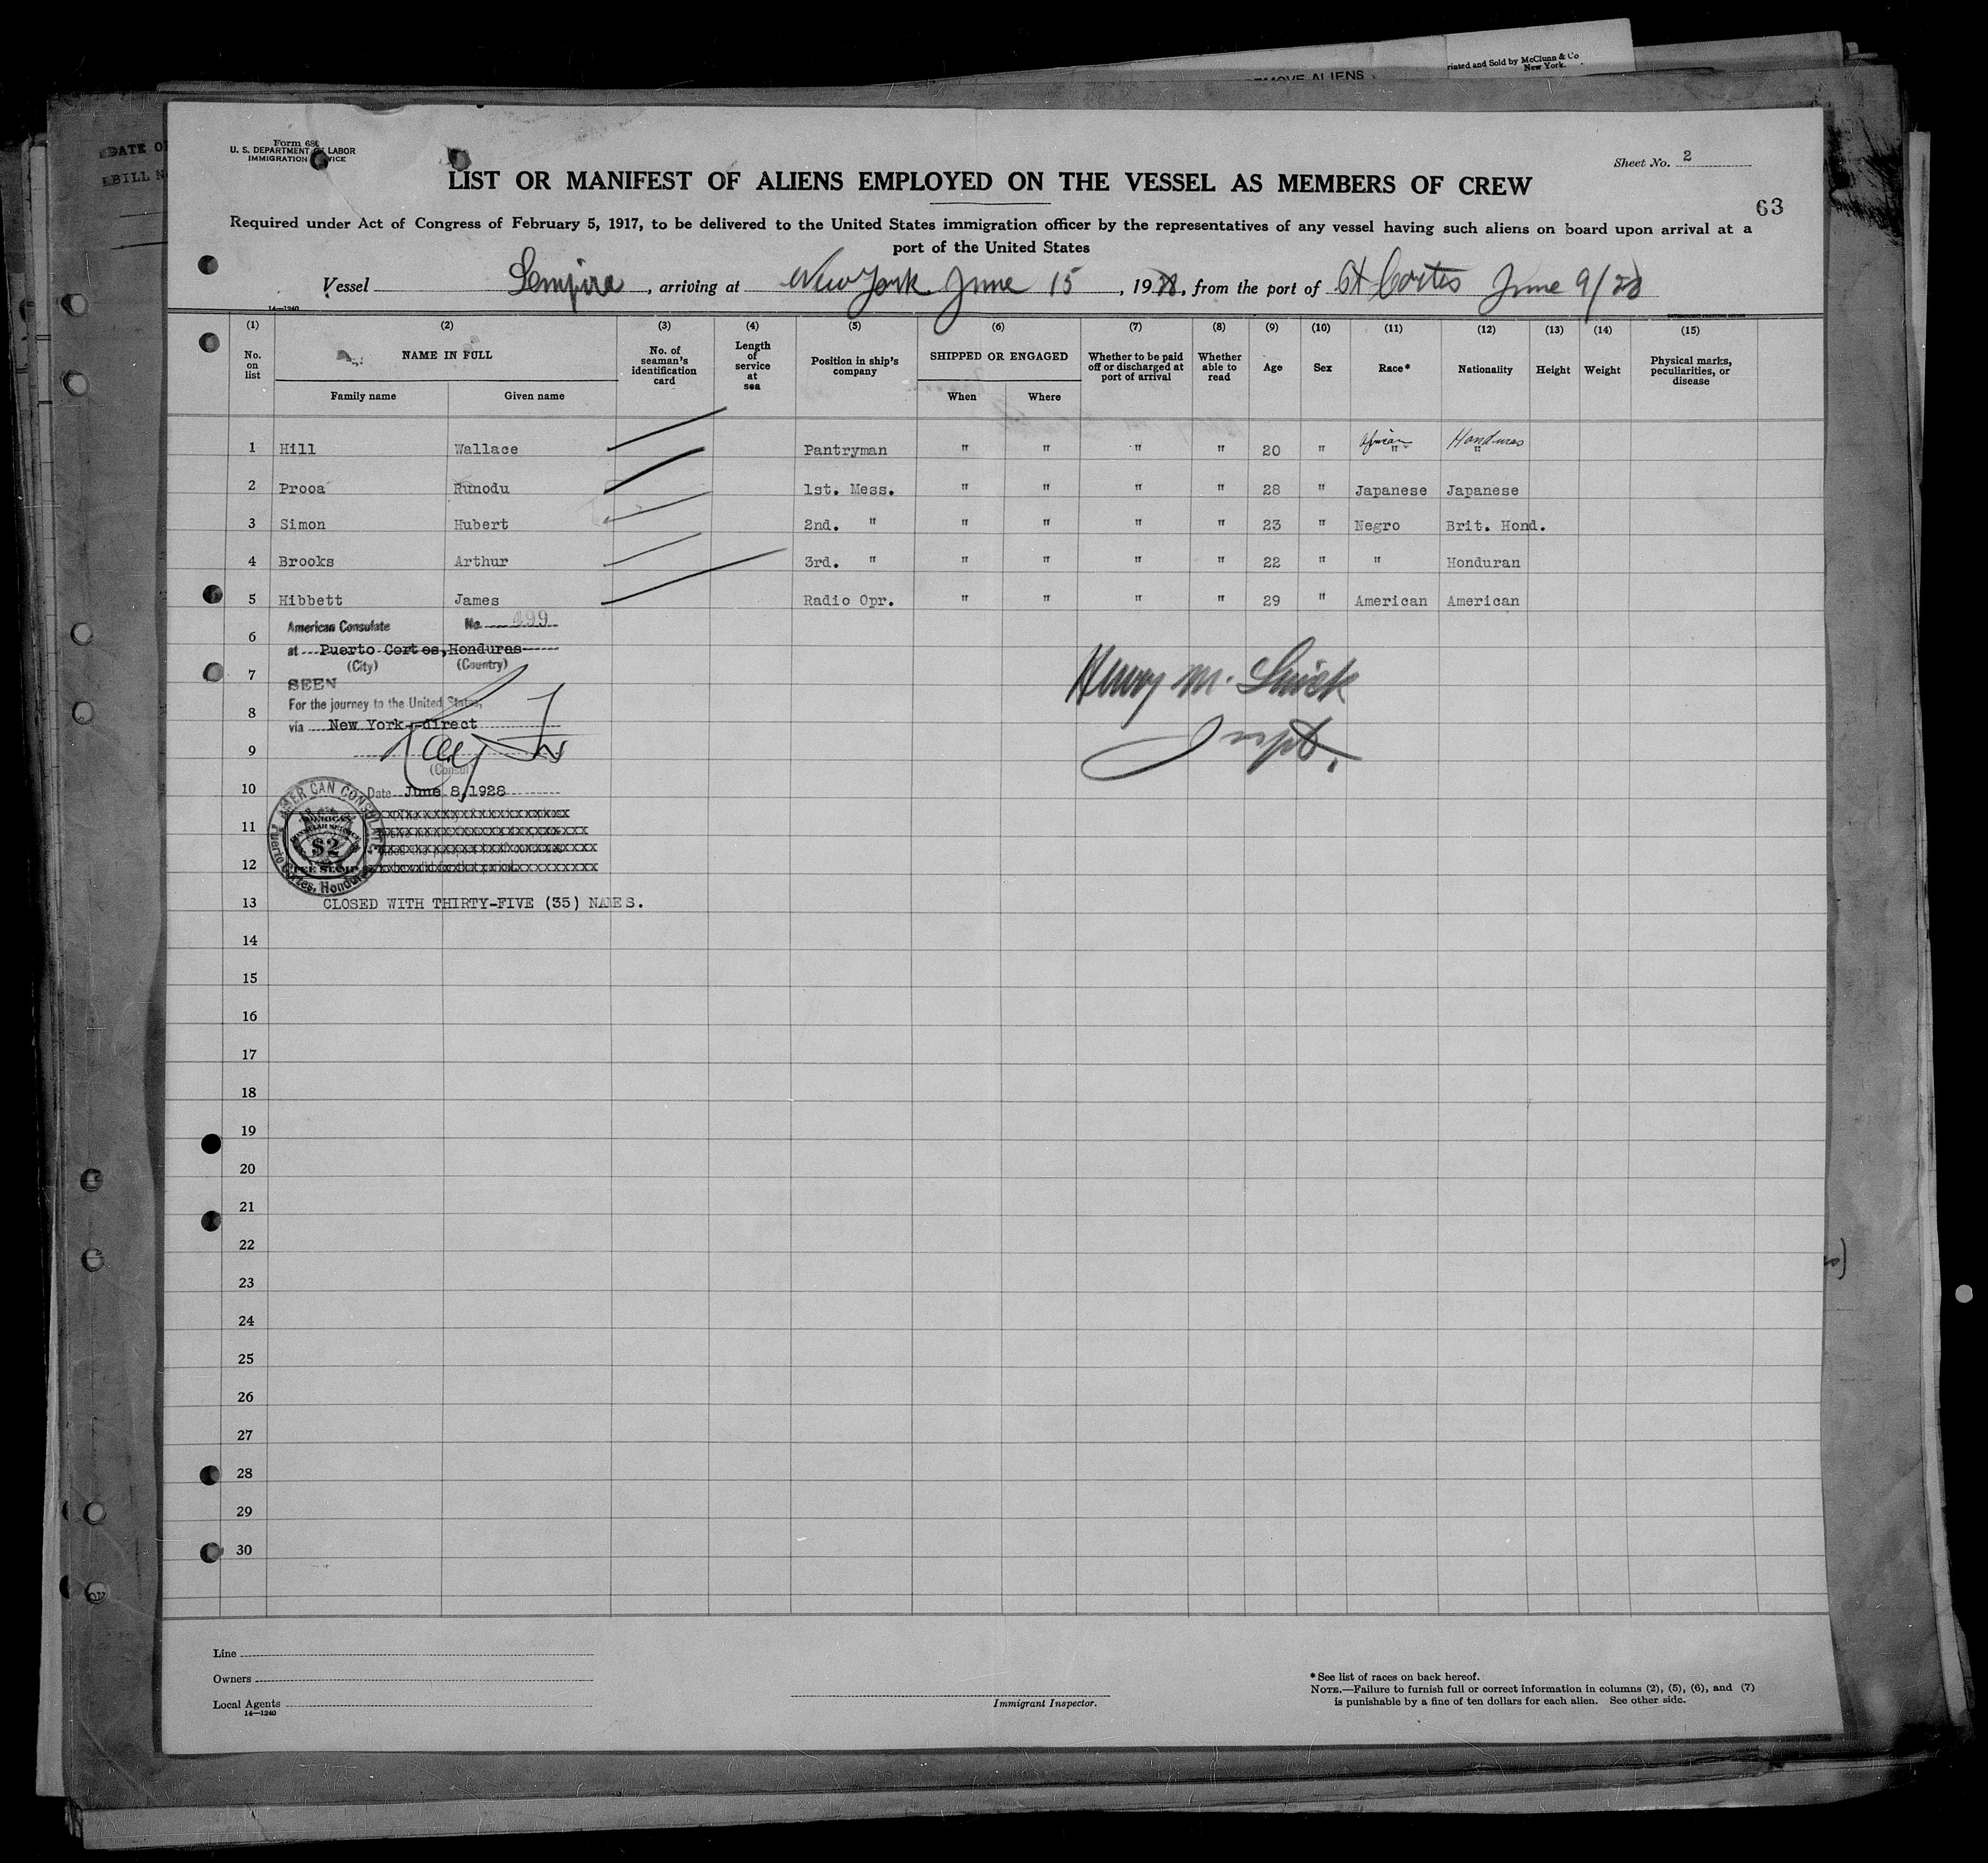 DATE O
BILL N
MOVE ALIENS
rinted and Sold by McClunn & Co
New York.
Form 680
U. S. DEPARTMENT OF LABOR
IMMIGRATION SERVICE
Sheet No. 2
LIST OR MANIFEST OF ALIENS EMPLOYED ON THE VESSEL AS MEMBERS OF CREW
63
Required under Act of Congress of February 5, 1917, to be delivered to the United States immigration officer by the representatives of any vessel having such aliens on board upon arrival at a
port of the United States
Vessel Lempira, arriving at New York June 15, 1928, from the port of Pt Cortes June 9/28
14—1240
(1) (2) (3) (4) (5) (6) (7) (8) (9) (10) (11) (12) (13) (14) (15)
No. on list
NAME IN FULL
Family name
Given name
No. of seaman's identification card
Length of service at sea
Position in ship's company
SHIPPED OR ENGAGED
When
Where
Whether to be paid off or discharged at port of arrival
Whether able to read
Age
Sex
Race*
Nationality
Height
Weight
Physical marks, peculiarities, or disease
African Honduras
1 Hill Wallace Pantryman " " " " 20 " " "
2 Prooa Runodu 1st. Mess. " " " " 28 " Japanese Japanese
3 Simon Hubert 2nd. " " " " " 23 " Negro Brit. Hond.
4 Brooks Arthur 3rd. " " " " " 22 " " Honduran
5 Hibbett James Radio Opr. " " " " 29 " American American
American Consulate No. 499
6
at Puerto Cortes, Honduras
(City) (Country)
7
SEEN
For the journey to the United States,
8
via New York direct
9
(Consul)
Henry M.
Inspt.
10
Date June 8, 1928
AMERICAN CONSULATE
Puerto Cortes, Honduras
AMERICAN
CONSULAR SERVICE
$2
FEE STAMP
11
12
13 CLOSED WITH THIRTY-FIVE (35) NAMES.
14
15
16
17
18
19
20
21
22
23
24
25
26
27
28
29
30
Line
Owners
Local Agents
14—1240
Immigrant Inspector.
* See list of races on back hereof.
NOTE.—Failure to furnish full or correct information in columns (2), (5), (6), and (7)
is punishable by a fine of ten dollars for each alien. See other side.